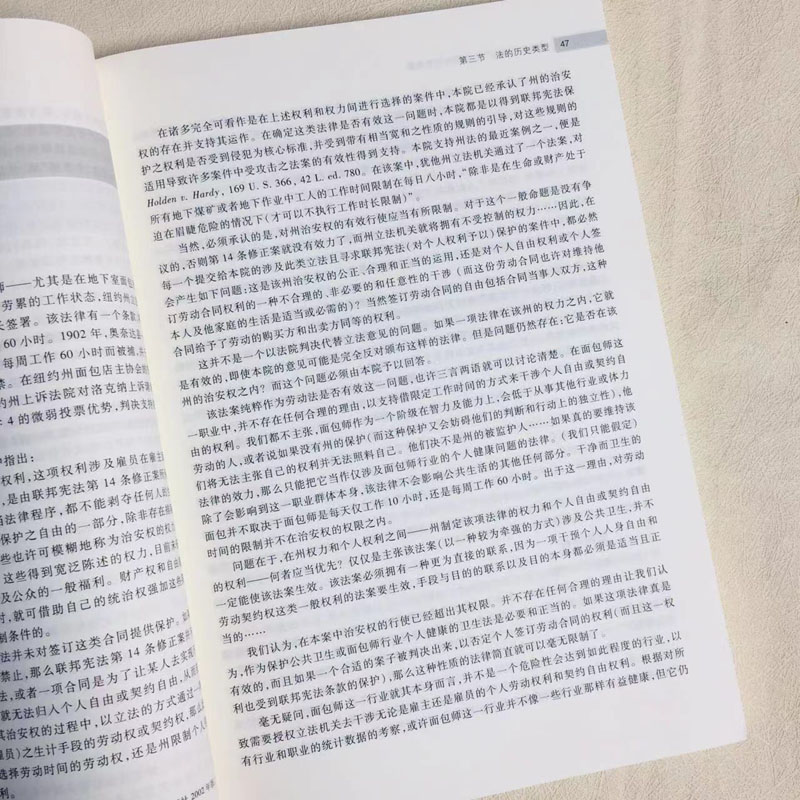 师——尤其是在地下室面包
劳累的工作状态,纽约州立
签署。该法律有一个条款
60 小时。1902 年,奥奈达县
每周工作 60 小时而被捕,
禁。在纽约州面包店主协会
州上诉法院对洛克纳上诉
:4 的微弱投票优势,判决支持
中指出:
权利,这项权利涉及雇员在雇主
,是由联邦宪法第 14 条修正案所
当法律程序,都不能剥夺任何人的
保护之自由的一部分,除非存在
些也许可模糊地称为治安权的
这些得到宽泛陈述的权力,目前未
及公众的一般福利。财产权和自由
时,就可借助自己的统治权强加这些
制条件的。
法并未对签订这类合同提供保护。如
禁止,那么联邦宪法第 14 条修正案并
法,或者一项合同是为了让某人去实现
就无法归入个人自由或契约自由,从而
其治安权的过程中,以立法的方式通过一
雇员)之生计手段的劳动权或契约权,那么
选择劳动时间的劳动权,还是州限制个人
2002 年
第三节 法的历史类型 47
在诸多完全可看作是在上述权利和权力间进行选择的案件中,本院已经承认了州的治安
权的存在并支持其运作。在确定这类法律是否有效这一问题时,本院都是以得到联邦宪法保
护之权利是否受到侵犯为核心标准,并受到带有相当宽和之性质的规则的引导,对这些规则的
适用导致许多案件中受攻击之法案的有效性得到支持。本院支持州法的最近案例之一,便是
Holden v. Hardy, 169 U. S. 366, 42 L. ed. 780。在该案中,犹他州立法机关通过了一个法案,对
所有地下煤矿或者地下作业中工人的工作时间限制在每日八小时,“除非是在生命或财产处于
迫在眉睫危险的情况下(才可以不执行工作时长限制)”。
当然,必须承认的是,对州治安权的有效行使应当有所限制。对于这个一般命题是没有争
议的,否则第 14 条修正案就没有效力了,而州立法机关就将拥有不受控制的权力……因此,在
每一个提交给本院的涉及此类立法且寻求联邦宪法(对个人权利予以)保护的案件中,都必然
会产生如下问题:这是该州治安权的公正、合理和正当的运用,还是对个人自由权利或个人签
订劳动合同权利的一种不合理的、非必要的和任意性的干涉(而这份劳动合同也许对维持他
本人及他家庭的生活是适当或必需的)?当然签订劳动合同的自由包括合同当事人双方,这种
合同给予了劳动的购买方和出卖方同等的权利。
这并不是一个以法院判决代替立法意见的问题。如果一项法律在该州的权力之内,它就
是有效的,即使本院的意见可能是完全反对颁布这样的法律。但是问题仍然存在;它是否在该
州的治安权之内?而这个问题必须由本院予以回答。
该法案纯粹作为劳动法是否有效这一问题,也许三言两语就可以讨论清楚。在面包师这
一职业中,并不存在任何合理的理由,以支持借限定工作时间的方式来干涉个人自由或契约自
由的权利。我们都不主张,面包师作为一个阶级在智力及能力上,会低于从事其他行业或体力
劳动的人,或者说如果没有州的保护(而这种保护又会妨碍他们的判断和行动上的独立性),他
们将无法主张自己的权利并无法照料自己。他们决不是州的被监护人……如果真的要维持该
法律的效力,那么只能把它当作仅涉及面包师行业的个人健康问题的法律。(我们只能假定)
除了会影响到这一职业群体本身,该法律不会影响公共生活的其他任何部分。干净而卫生的
面包并不取决于面包师是每天仅工作 10 小时,还是每周工作 60 小时。出于这一理由,对劳动
时间的限制并不在治安权的权限之内。
问题在于,在州权力和个人权利之间——州制定该项法律的权力和个人自由或契约自由
的权利——何者应当优先?仅仅是主张该法案(以一种较为牵强的方式)涉及公共卫生,并不
一定能使该法案生效。该法案必须拥有一种更为直接的联系,因为一项干预个人人身自由和
劳动契约权这类一般权利的法案要生效,手段与目的的联系以及目的本身都必须是适当且正
当的……
我们认为,在本案中治安权的行使已经超出其权限。并不存在任何合理的理由让我们认
为,作为保护公共卫生或面包师行业个人健康的卫生法是必要和正当的。如果这项法律真是
有效的,而且如果一个合适的案子被判决出来,以否定个人签订劳动合同的权利(而且这一权
利也受到联邦宪法条款的保护),那么这种性质的法律简直就可以毫无限制了。
毫无疑问,面包师这一行业就其本身而言,并不是一个危险性会达到如此程度的行业,以
致需要授权立法机关去干涉无论是雇主还是雇员的个人劳动权利和契约自由权利。根据对所
有行业和职业的统计数据的考察,或许面包师这一行业并不像一些行业那样有益健康,但它仍